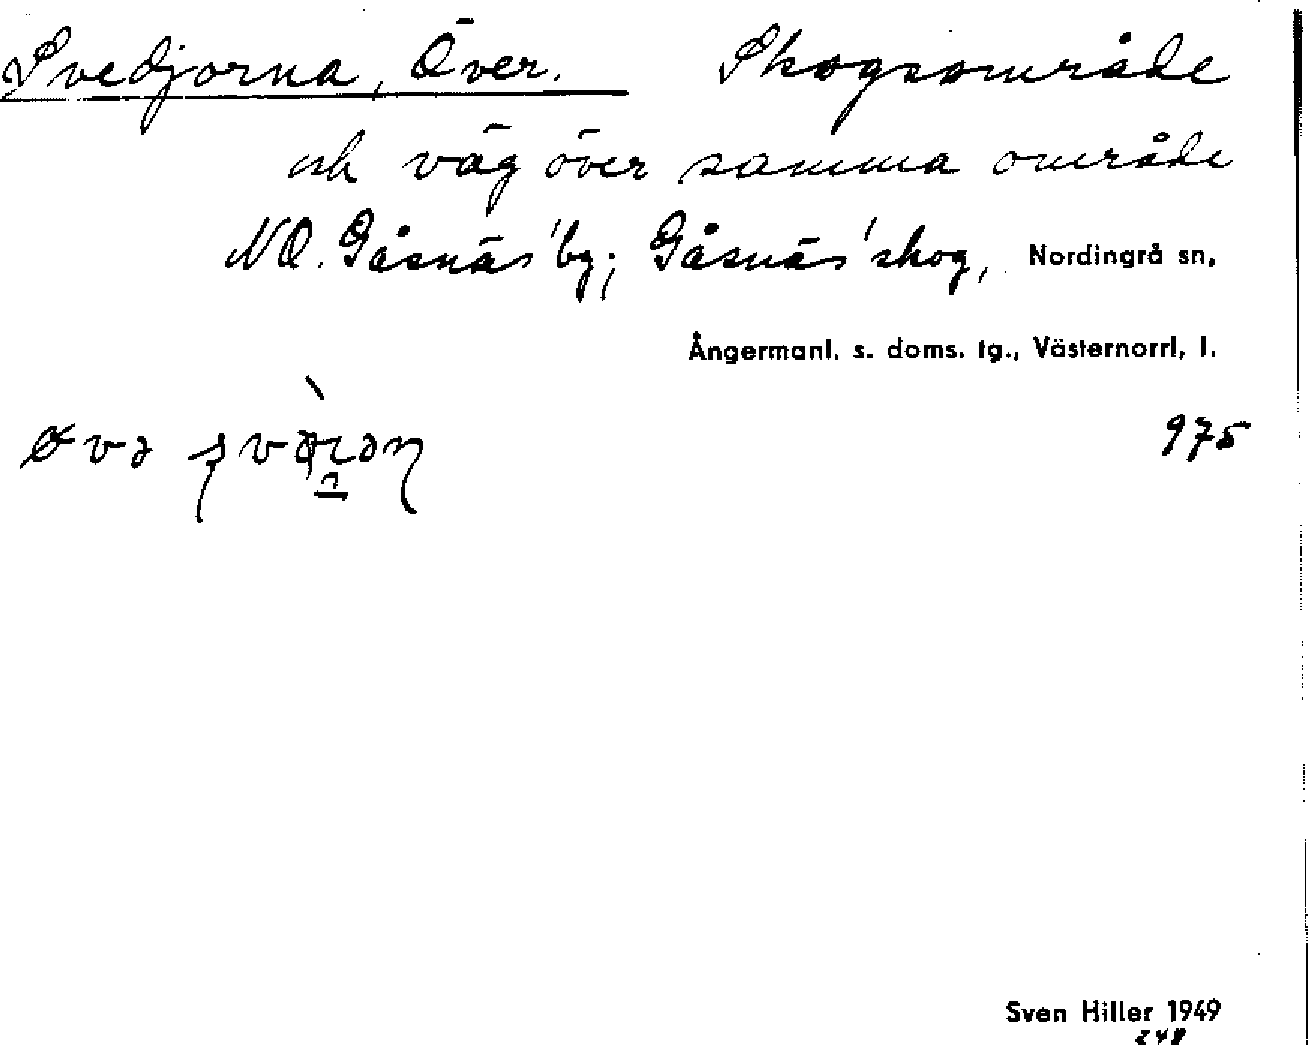 Svedjorna, Över. Skogsområde
och väg över samma område
NO. Gåsnäs' by; Gåsnäs' skog, Nordingrå sn,
Ångermanl. s. doms. tg., Västernorrl, l.
975
Sven Hiller 1949
248